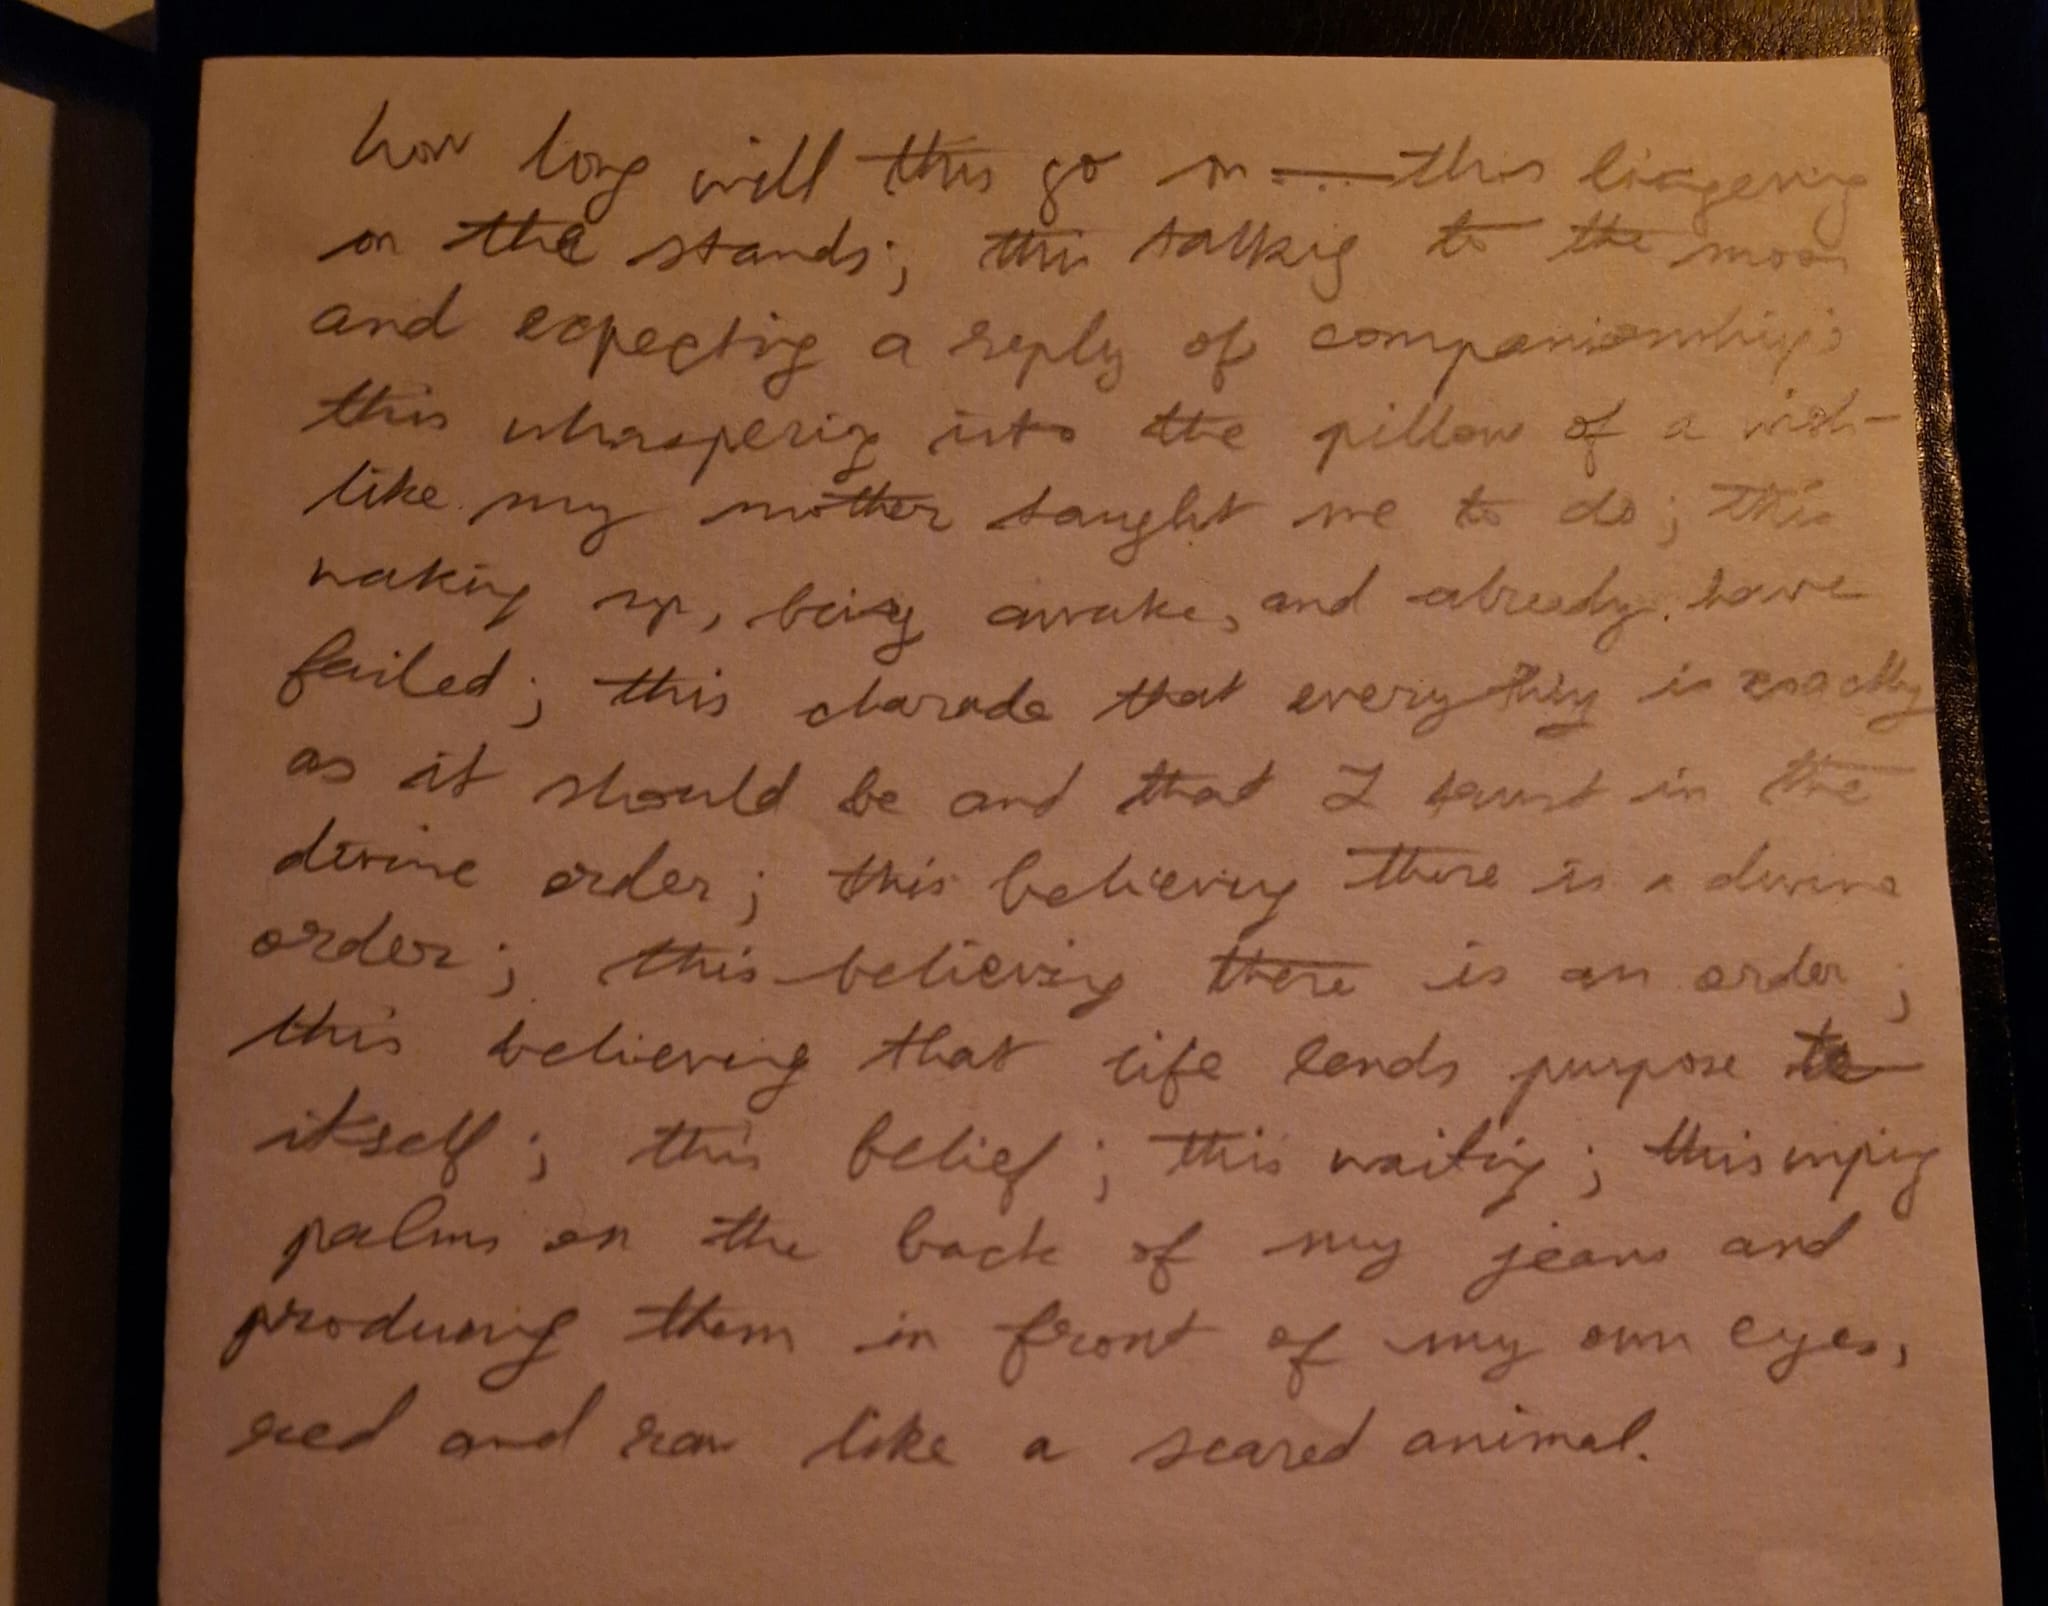 how long will this go on — this lingering
on the stands; this talking to the moon
and expecting a reply of companionship;
this whispering into the pillow of a wish-
like my mother taught me to do; this
waking up, being awake, and already have
failed; this charade that everything is exactly
as it should be and that I trust in the
divine order; this believing there is a divine
order; this believing there is an order;
this believing that life lends purpose to
itself; this belief; this waiting; this wiping
palms on the back of my jeans and
producing them in front of my own eyes,
red and raw like a scared animal.